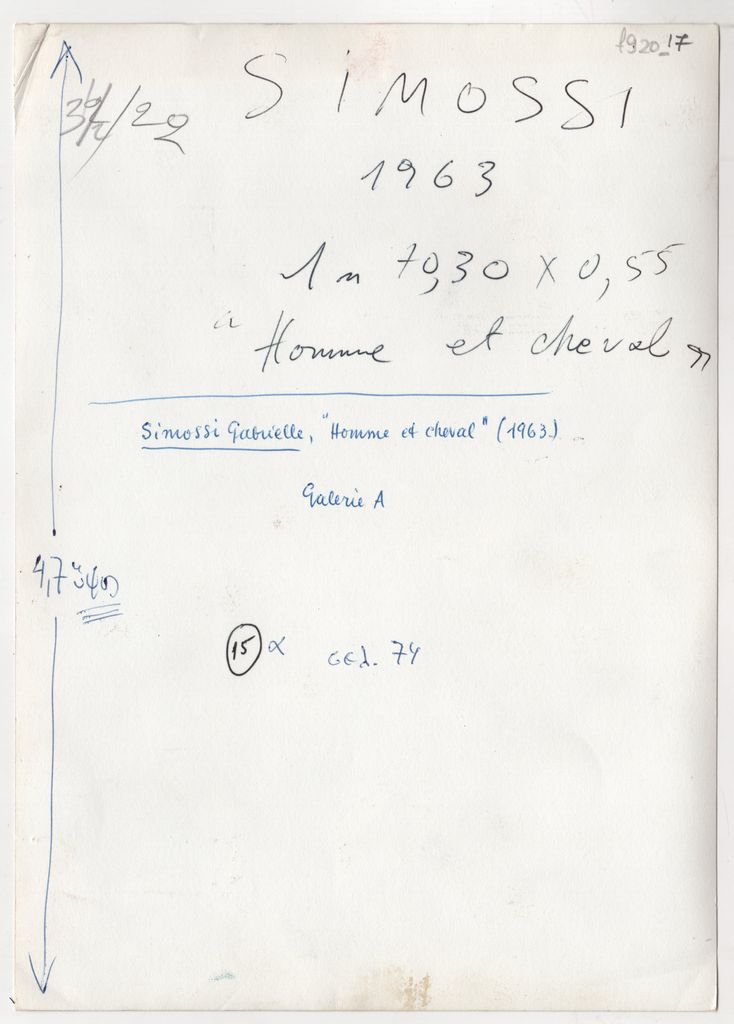 f920_17
/22
SIMOSSI
1963
1m 70,30 X 0,55
"Homme et cheval"
Simossi Gabrielle, "Homme et cheval" (1963)
Galerie A
4,7 ύψος
15 α σελ. 74